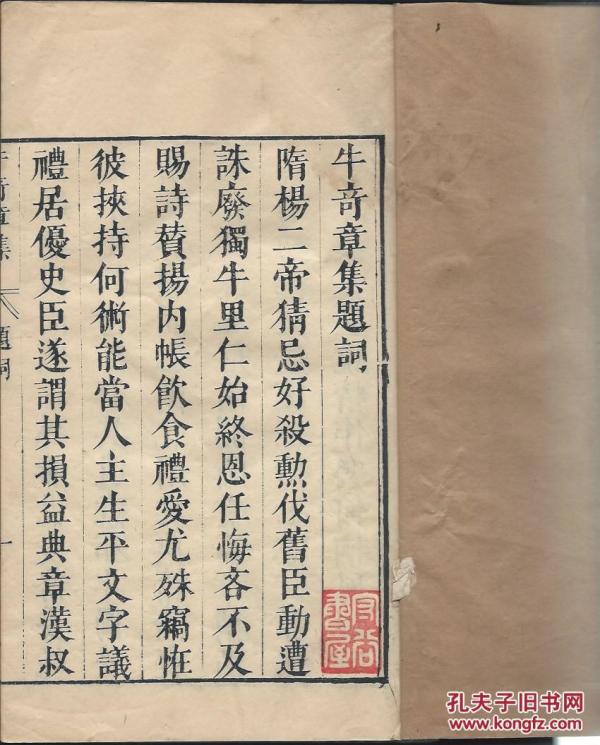 牛奇章集題詞
隋楊二帝猜忌好殺勲伐舊臣動遭
誅廢獨牛里仁始終恩任悔吝不及
賜詩賛揚内帳飲食禮愛尤殊竊恠
彼挾持何術能當人主生平文字議
禮居優史臣遂謂其損益典章漢叔
牛奇章集
題詞
一
孔夫子旧书网
www.kongfz.com